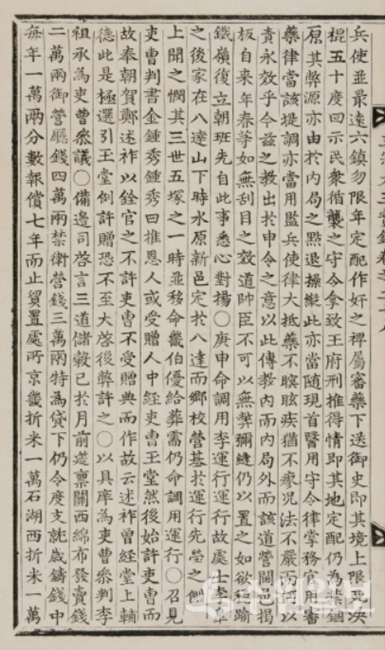 兵使並最遠六鎭勿限年定配作好之裨屬審藥下送御史即其境上限死決
棍五十度回示民衆循襲之守令拿致王府刑推得情即其地定配仍爲
原其弊源亦由於內局之點退操縱此亦當隨現首醫用守令律掌務官用審
藥律當該提調亦當用監兵使律大抵藥不瞑眩疾猶不瘳況法不嚴而何以
責永效乎今玆之敎出於申令之意以此傳敎內而內局外而該道營閫邑揭
板自來年春等如無刮目之效道帥臣不可以無弊彌縫仍以置之如欲踰
鐵嶺復立朝班先自此事悉心對揚○庚申命調用李運行運行故處士李
之後家在八達山下時水原新邑定於八達而鄕校營基於運行先塋之側
上聞之憫其三世五塚之一時並移命畿伯優給葬需仍命調用運行○召見
吏曹判書金鍾秀鍾秀曰推恩人或受贈人中經吏曹玉堂然後始許吏曹而
故奉朝賀鄭述祚以銓官之不許吏曹不受贈典而作故云述祚曾經堂上輔
德此是極選引玉堂例許贈恐不至大啓後弊許之○以具庠爲吏曹參判李
祖承爲吏曹參議○備邊司啓言三道儲穀已於月前遂稟關西綿布發賣錢
二萬兩御營廳錢四萬兩禁衛營錢三萬兩特爲貸下仍令度支就歲鑄錢中
每年一萬兩分數報償七年而止貿置處所京畿折米一萬石湖西折米一萬